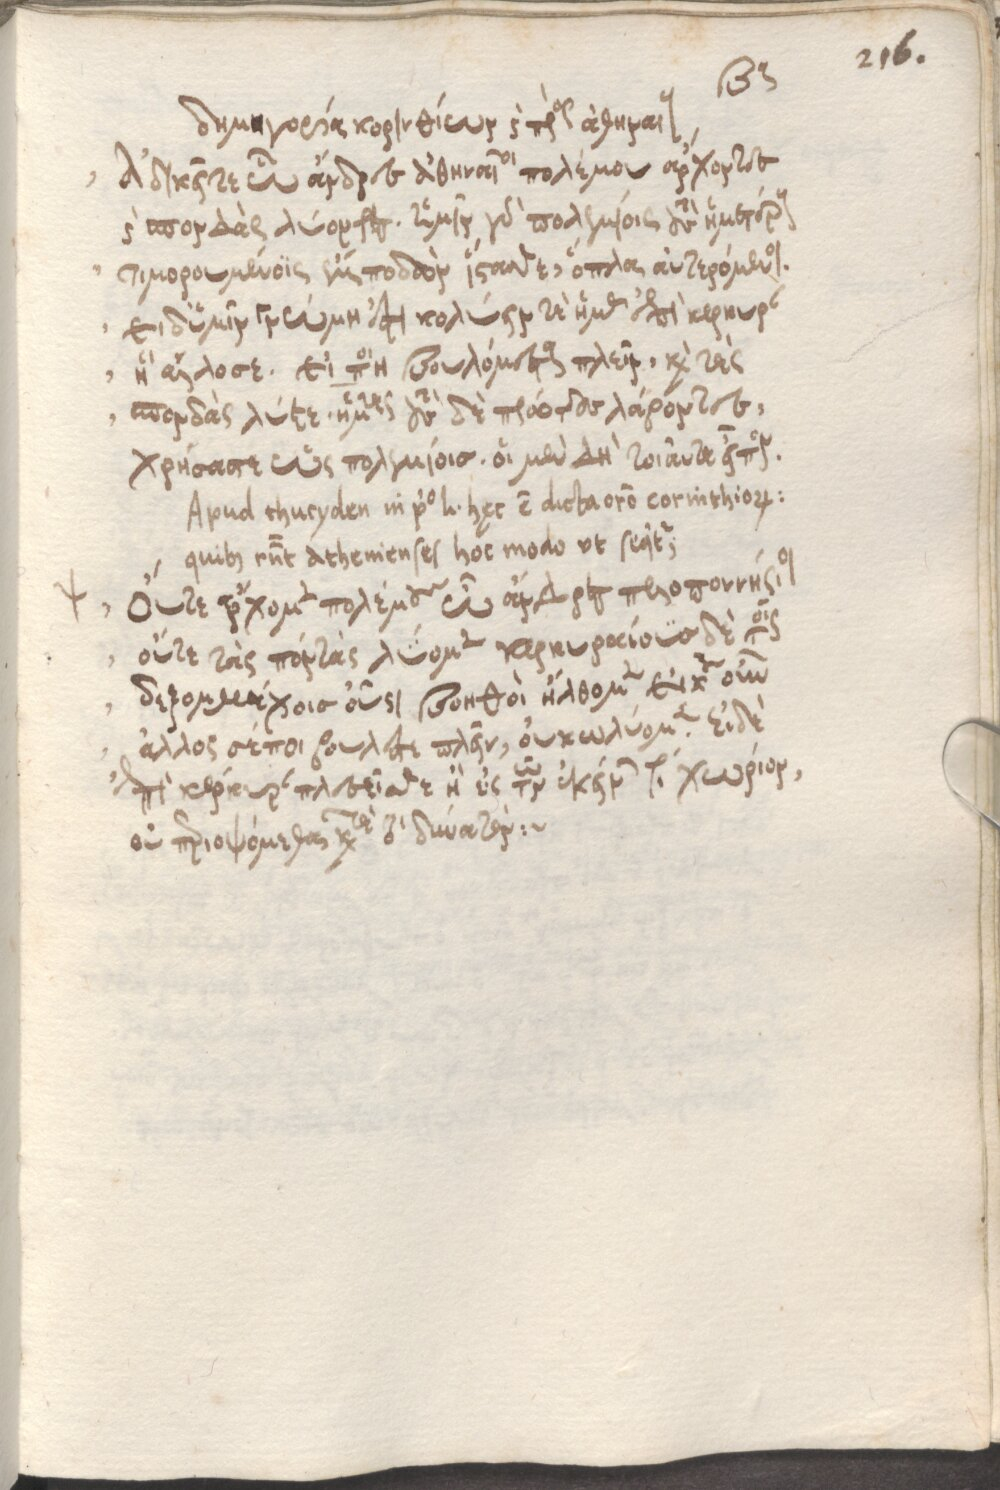 216.
δημηγορία κορινθίων πρὸς ἀθηναι
Ἀδικεῖτε ὦ ἄνδρες Ἀθηναῖοι πολέμου ἄρχοντες
σπονδὰς λύοντες. ἡμῖν γὰρ πολεμίοις ἡμετέρους
τιμορουμένοις ἐμποδὼν ἵστασθε, ὅπλα ἀνταιρόμενοι.
εἰ δ' ὑμῖν γνώμη ἐστὶ κωλύειν τε ἡμᾶς ἐπὶ κερκυρ
ἢ ἄλλοσε. εἴ πη βουλόμεθα πλεῖν, καὶ τὰς
σπονδὰς λύετε. ἡμᾶς δὲ πρώτους λαβόντες,
χρήσασθε ὡς πολεμίοις. οἱ μὲν δὴ τοιαῦτα εἶπον.
Apud thucyden in pº li. hęc ē dicta orō corinthioꝝ:
quibꝫ rn̄t Athenienses hoc modo ut seqt̃;
Οὔτε ἄρχομεν πολέμου ὦ ἄνδρες πελοποννήσιοι
οὔτε τὰς σπονδὰς λύομεν κερκυραίους δὲ τοῖς
δε ξυμμάχοις οὖσι βοηθοὶ ἤλθομεν εἰ μὲν οὖν
ἄλλος σέ ποι βούλεσθε πλεῖν, οὐ κωλύομεν. εἰ δὲ
ἐπὶ κέρκυρ πλεεῖσθε ἢ ἐς τῶν ἐκείνων τι χωρίον,
οὐ περιοψόμεθα κατὰ τὸ δυνατόν:~